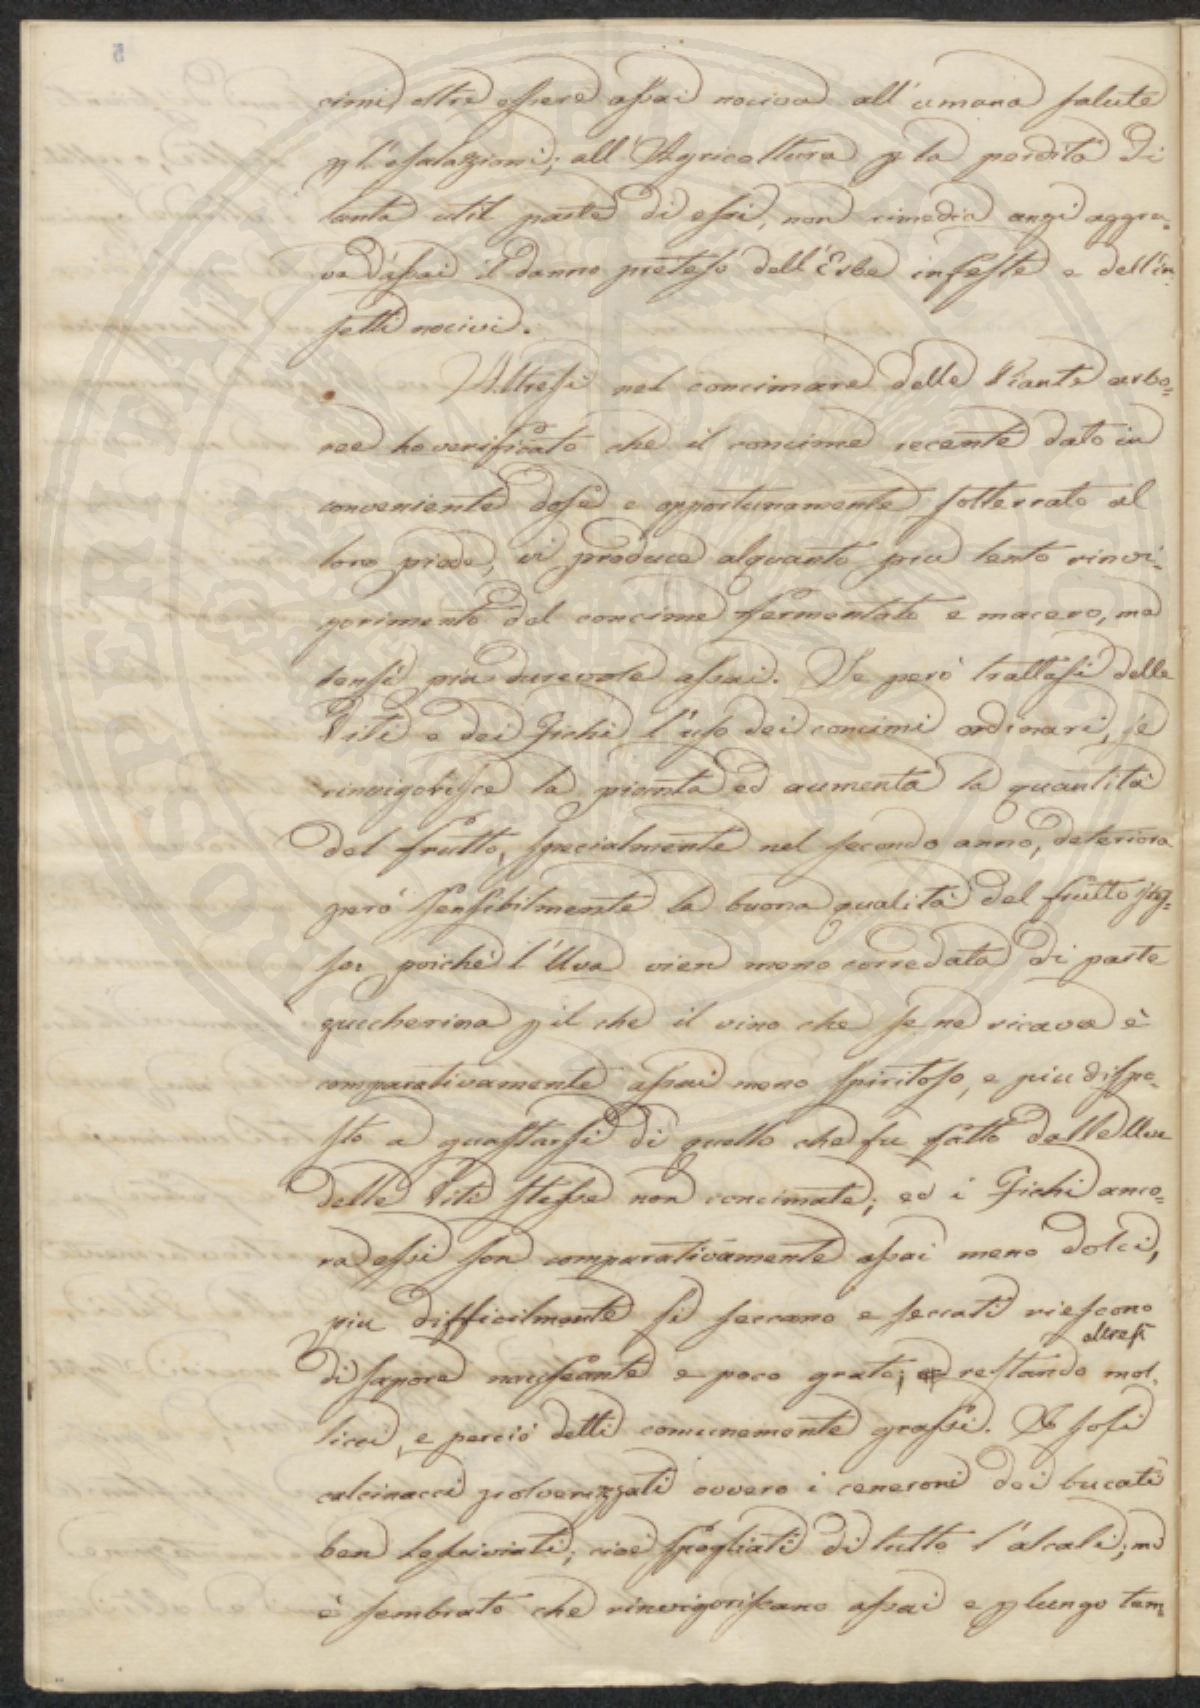 cimi, oltre essere assai nociva all'umana salute
p l'esalazzioni; all'Agricoltura p la perdita di
tanta util parte di essi, non rimedia anzi aggra-
va d'assai il danno preteso dell'Erbe infeste e dell'in-
setti nocivi.
Altresi nel concimare delle Piante arbo=
ree ho verificato che il concime recente dato in
conveniente dose e opportunamente sotterrato al
loro piede, vi produce alquanto piu lento rinvi-
gorimento del concime fermentato e macero, ma
bensi piu durevole assai. Se però trattasi delle
Viti e dei Fichi l'uso dei concimi ordinari, se
rinvigorisce la pianta ed aumenta la quantità
del frutto, specialmente nel secondo anno, deteriora
però sensibilmente la buona qualità del frutto stes=
so: poichè l'Uva vien meno corredata di parte
zuccherina p il che il vino che se ne ricava è
comparativamente assai meno spiritoso, e piu dispo-
sto a guastarsi di quello che fu fatto delle Uve
delle Viti stesse non concimate; ed i Fichi anco=
ra essi son comparativamente assai meno dolci,
piu difficilmente si seccano e seccati riescono
di sapore nauseante e poco grato; restando altresi mol-
licci, e perciò detti comunemente grassi. I soli
calcinacci polverizzati ovvero i ceneroni dei bucati
ben lessiviati, cioè spogliati di tutto l'alcali; mi
è sembrato che rinvigoriscano assai e p lungo tem